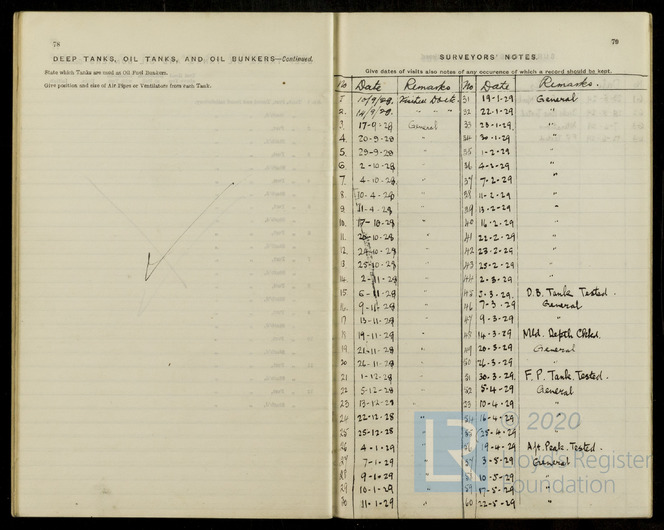 78
DEEP TANKS, OIL TANKS, AND OIL BUNKERS—Continued.
State which Tanks are used as Oil Fuel Bunkers.
Give position and size of Air Pipes or Ventilators from each Tank.
79
SURVEYORS' NOTES.
Give dates of visits also notes of any occurence of which a record should be kept.
No Date Remarks No Date Remarks.
1 10/9/28. 31 19-1-29 General
2. 14/9/28. " " " 32 22-1-29 "
3. 17-9-28 General 33 25-1-29 "
4. 20-9-28 " 34 30-1-29 "
5. 25-9-28 " 35 1-2-29 "
6. 2-10-28 " 36 4-2-29 "
7. 4-10-28 " 37 7-2-29 "
8. 10-4-28 " 38 11-2-29 "
9. 11-4-28 " 39 13-2-29 "
10. 17-10-28 " 40 16-2-29 "
11. 41 22-2-29 "
12. 42 23-2-29 "
13 25-10-28 " 43 25-2-29 "
14. 2-11-28 " 44 2-3-29 "
15 6-11-28 " 45 D.B. Tank Tested.
16. 9-11-28 " 46 7-3-29 General
17 13-11-28 " 47 9-3-29 "
18 19-11-28 " 48 14-3-29 Mld. Depth
19 21-11-28 " 49 20-3-29 General
20 26-11-28 " 50 26-3-29 "
21 1-12-28 " 51 30-3-29 F.P. Tank Tested.
22 5-12-28 " 52 5-4-29 General
23 13-12-28 " 53 10-4-29 "
24 22-12-28 " 54 16-4-29 "
25 25-12-28 " 55 "
26 4-1-29 " 56 19-4-29 Aft. Peak. Tested.
27 7-1-29 " 57 3-5-29 General
28 9-1-29 " 58 10-5-29 "
29 10-1-29 " 59 17-5-29 "
30 11-1-29 " 60 22-5-29 "
© 2020
Lloyd's Register
Foundation
LR